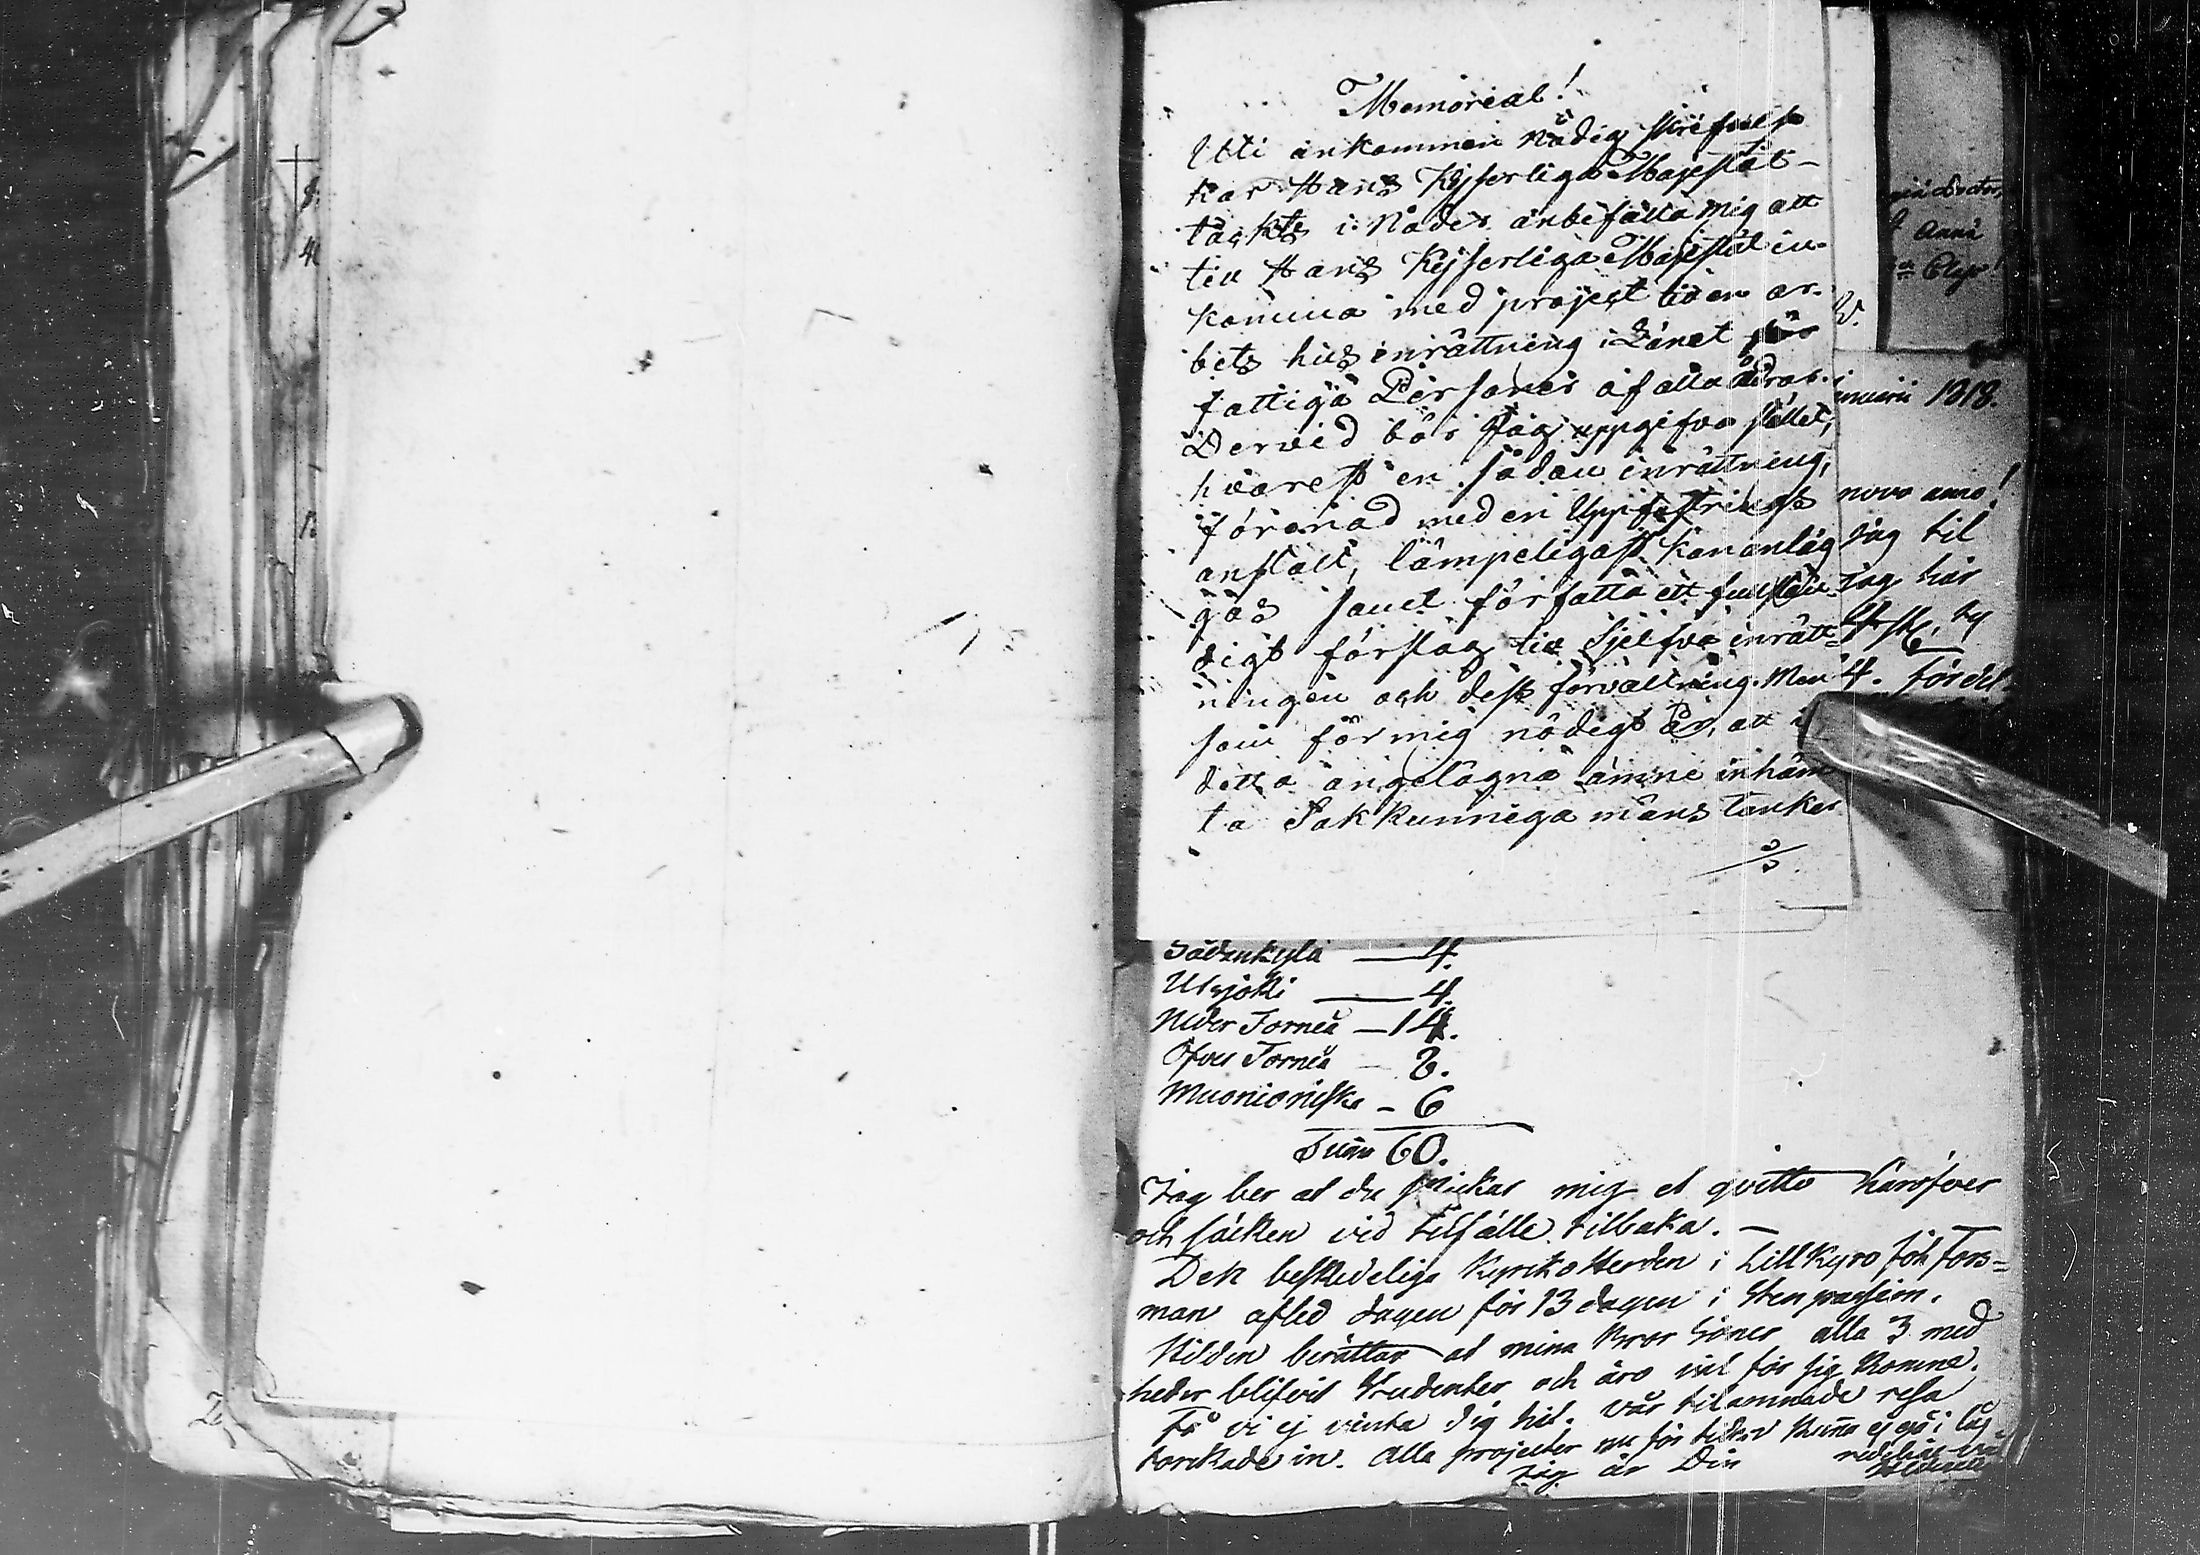 Memorial!
Uti ankommen Nådig skrifvelse
har Hans Kejserliga Majestät
täckts i Nåder anbefalla mig att
till Hans Kejserliga Majestät in-
komma med project till en ar-
bets hus inrättning i Länet för
fattiga Personer af alla
Dervid bör Jag uppgifva stället,
hvarest en sådan inrättning,
förenad med en Uppfostrings
anstalt, lämpeligast kan anläg
gas samt författa ett fullstän-
digt förslag till sjelfva inrätt-
ningen och dess förvaltning. Men
som för mig nödigt är, att i
detta angelägna ämne inhäm
ta Sakkunniga mäns tankar
Doctor,
Anna
nuarii 1818.
novo anno!
Jag til
Jag har
4. fördel-
Sådankylä — 4.
Utsjoki — 4.
Neder Torneå — 14.
Öfver Torneå — 8.
Muonioniska — 6
Sum̅a 60.
Jag ber at du skickar mig et qvitto härofver
och säcken vid tilfälle tilbaka. —
Den beskedeliga Kyrko Herden i Lillkyro Joh Fors=
man afled dagen för 13 dagen i Sten passion.
Hilden berättar at mina Bror Söner alla 3 med
heder blifvit Studenter och äro väl för sig komne.
Få vi ej vänta dig hit. Vår tilämnade resa
torkade in. Alla projecter nu för tiden kun̅a ej gå i låg
Jag är Din redelige